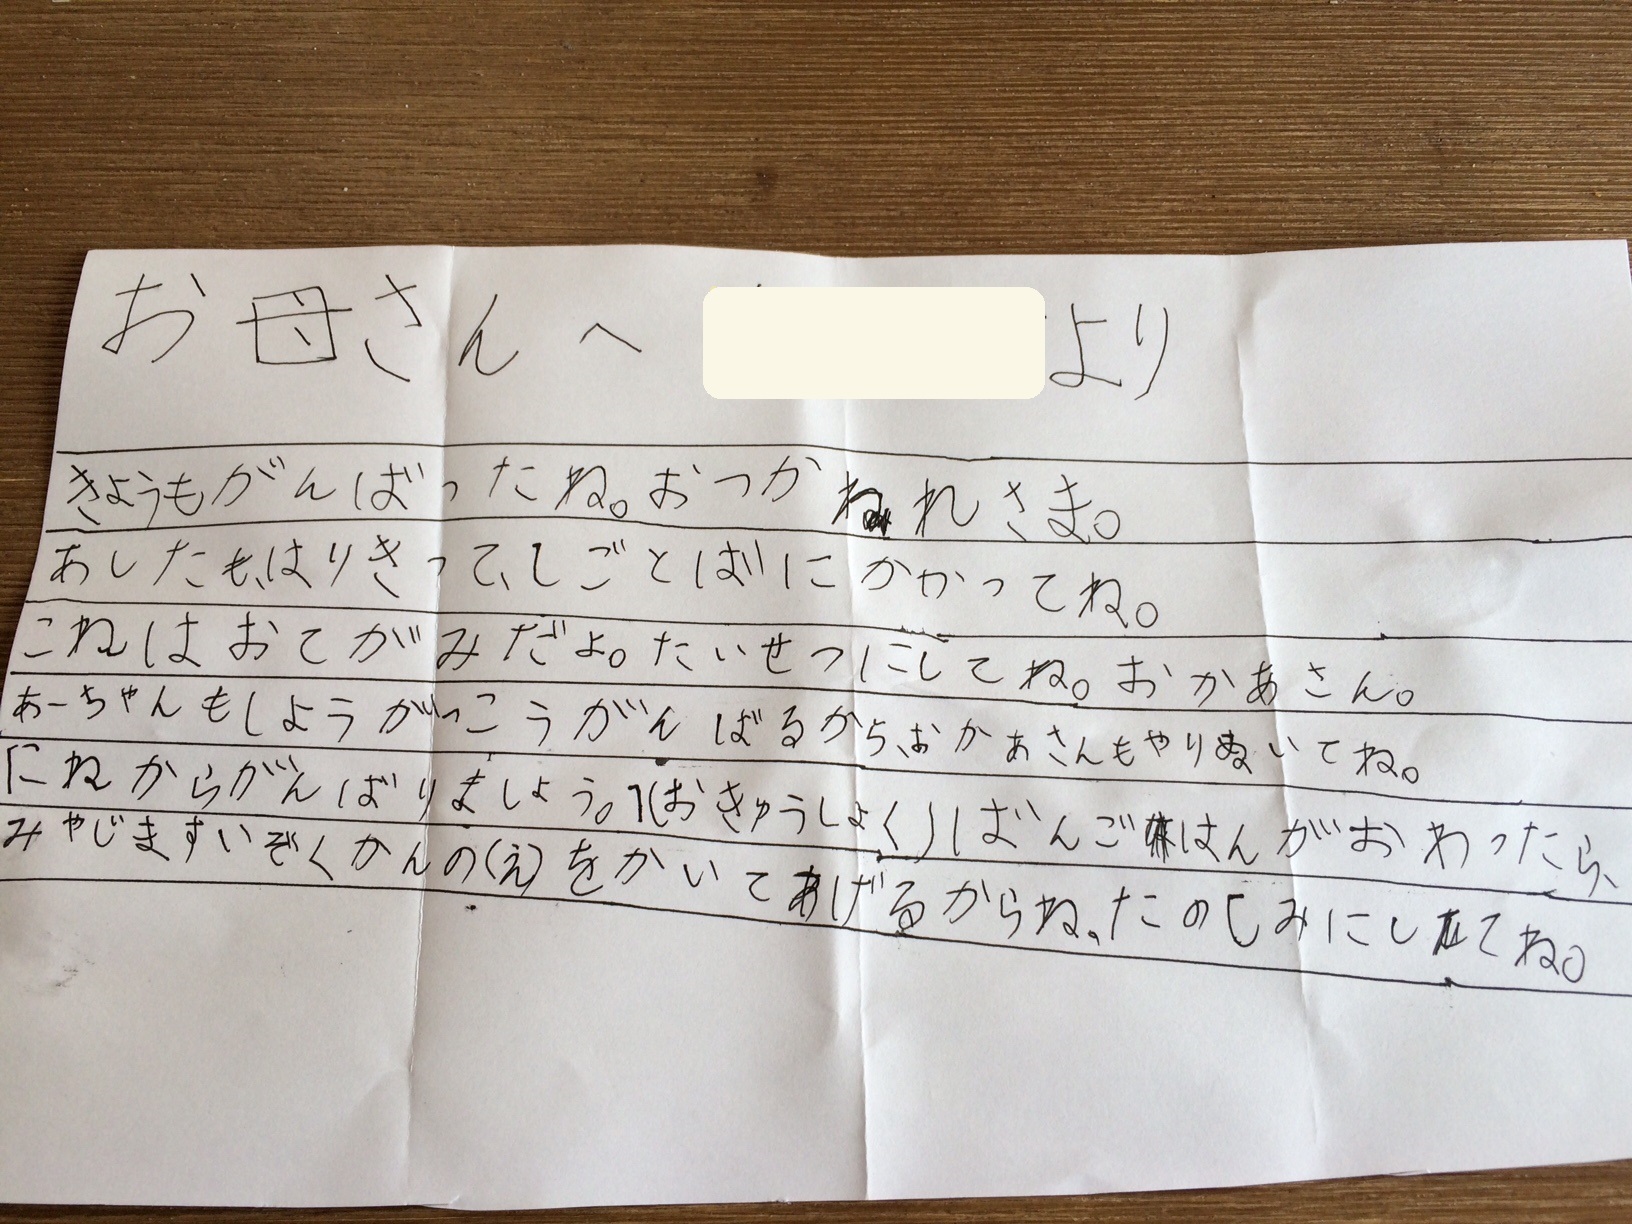 お母さんへ より
きょうもがんばったね。おつかれさま。
あしたも、はりきって、しごとばにかかってね。
これはおてがみだよ。たいせつにしてね。おかあさん。
あーちゃんもしようがっこうがんばるから、おかあさんもやりぬいてね。
にねからがんばりましょう。1(おきゅうしょく)ばんごはんがおわったら、
みやじますいぞくかんの(え)をかいてあげるからね。たのしみにしてね。